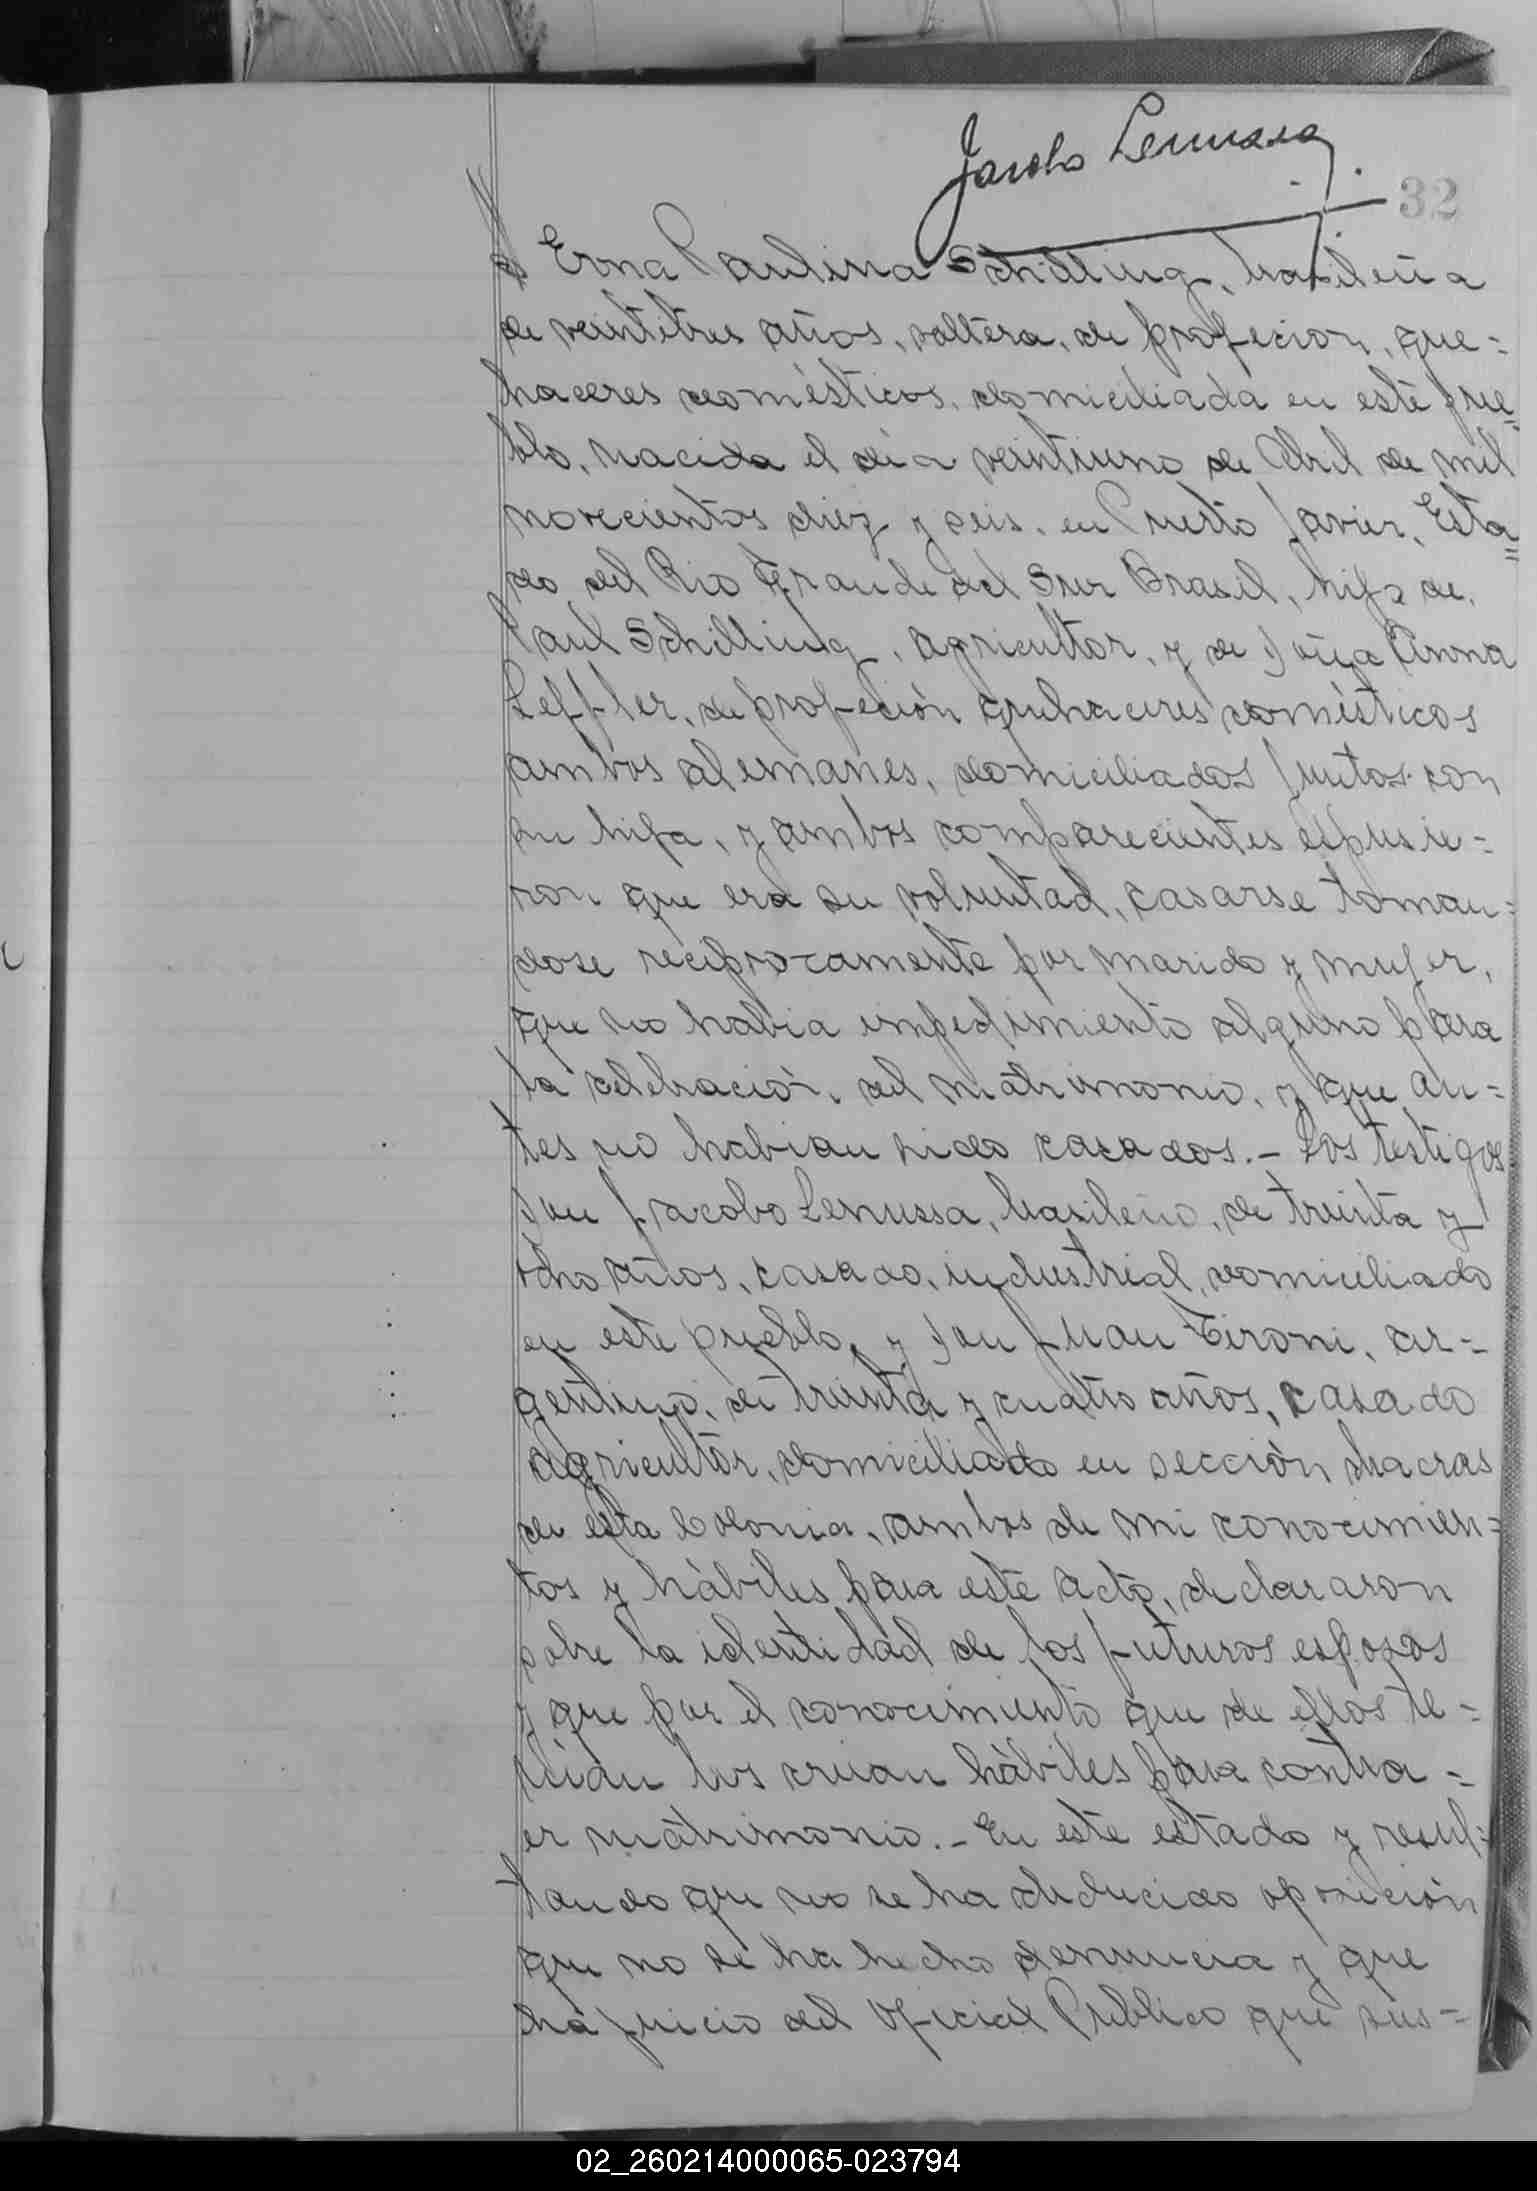 Jacobo Lenussa
32
Erna Paulina Schilling, brasileña
de veintitres años, soltera, de profecion, que=
haceres domésticos, domiciliada en este pue=
blo, nacida el dia veintiuno de Abril de mil
novecientos diez y seis, en Puerto Javier, Esta=
do del Rio Grande del Sur Brasil, hija de,
Paul Schilling, agricultor, y de Doña Anna
Leffler, de profeción quehaceres domésticos
ambos alemanes, domiciliados juntos con
su hija, y ambos comparecientes espusie=
ron que era su voluntad, casarse toman=
dose reciprocamente por marido y mujer,
que no habia impedimiento alguno para
la celebración, del matrimonio, y que an=
tes no habian sido casados.- Los testigos
Don Jacobo Lenussa, brasileño, de treinta y
ocho años, casado, industrial, domiciliado
en este pueblo, y Don Juan Tironi, ar=
gentino, de treinta y cuatro años, casado
agricultor, domiciliado en sección chacras
de esta Colonia, ambos de mi conocimien=
tos y hábiles para este acto, declararon
sobre la identidad de los futuros esposos
y que por el conocimiento que de ellos te=
nian los crian hábiles para contra=
er matrimonio.- En este estado y resul=
tando que no se ha deducido oposición
que no se ha hecho denuncia y que
ha juicio del Oficial Publico que sus=
02_260214000065-023794